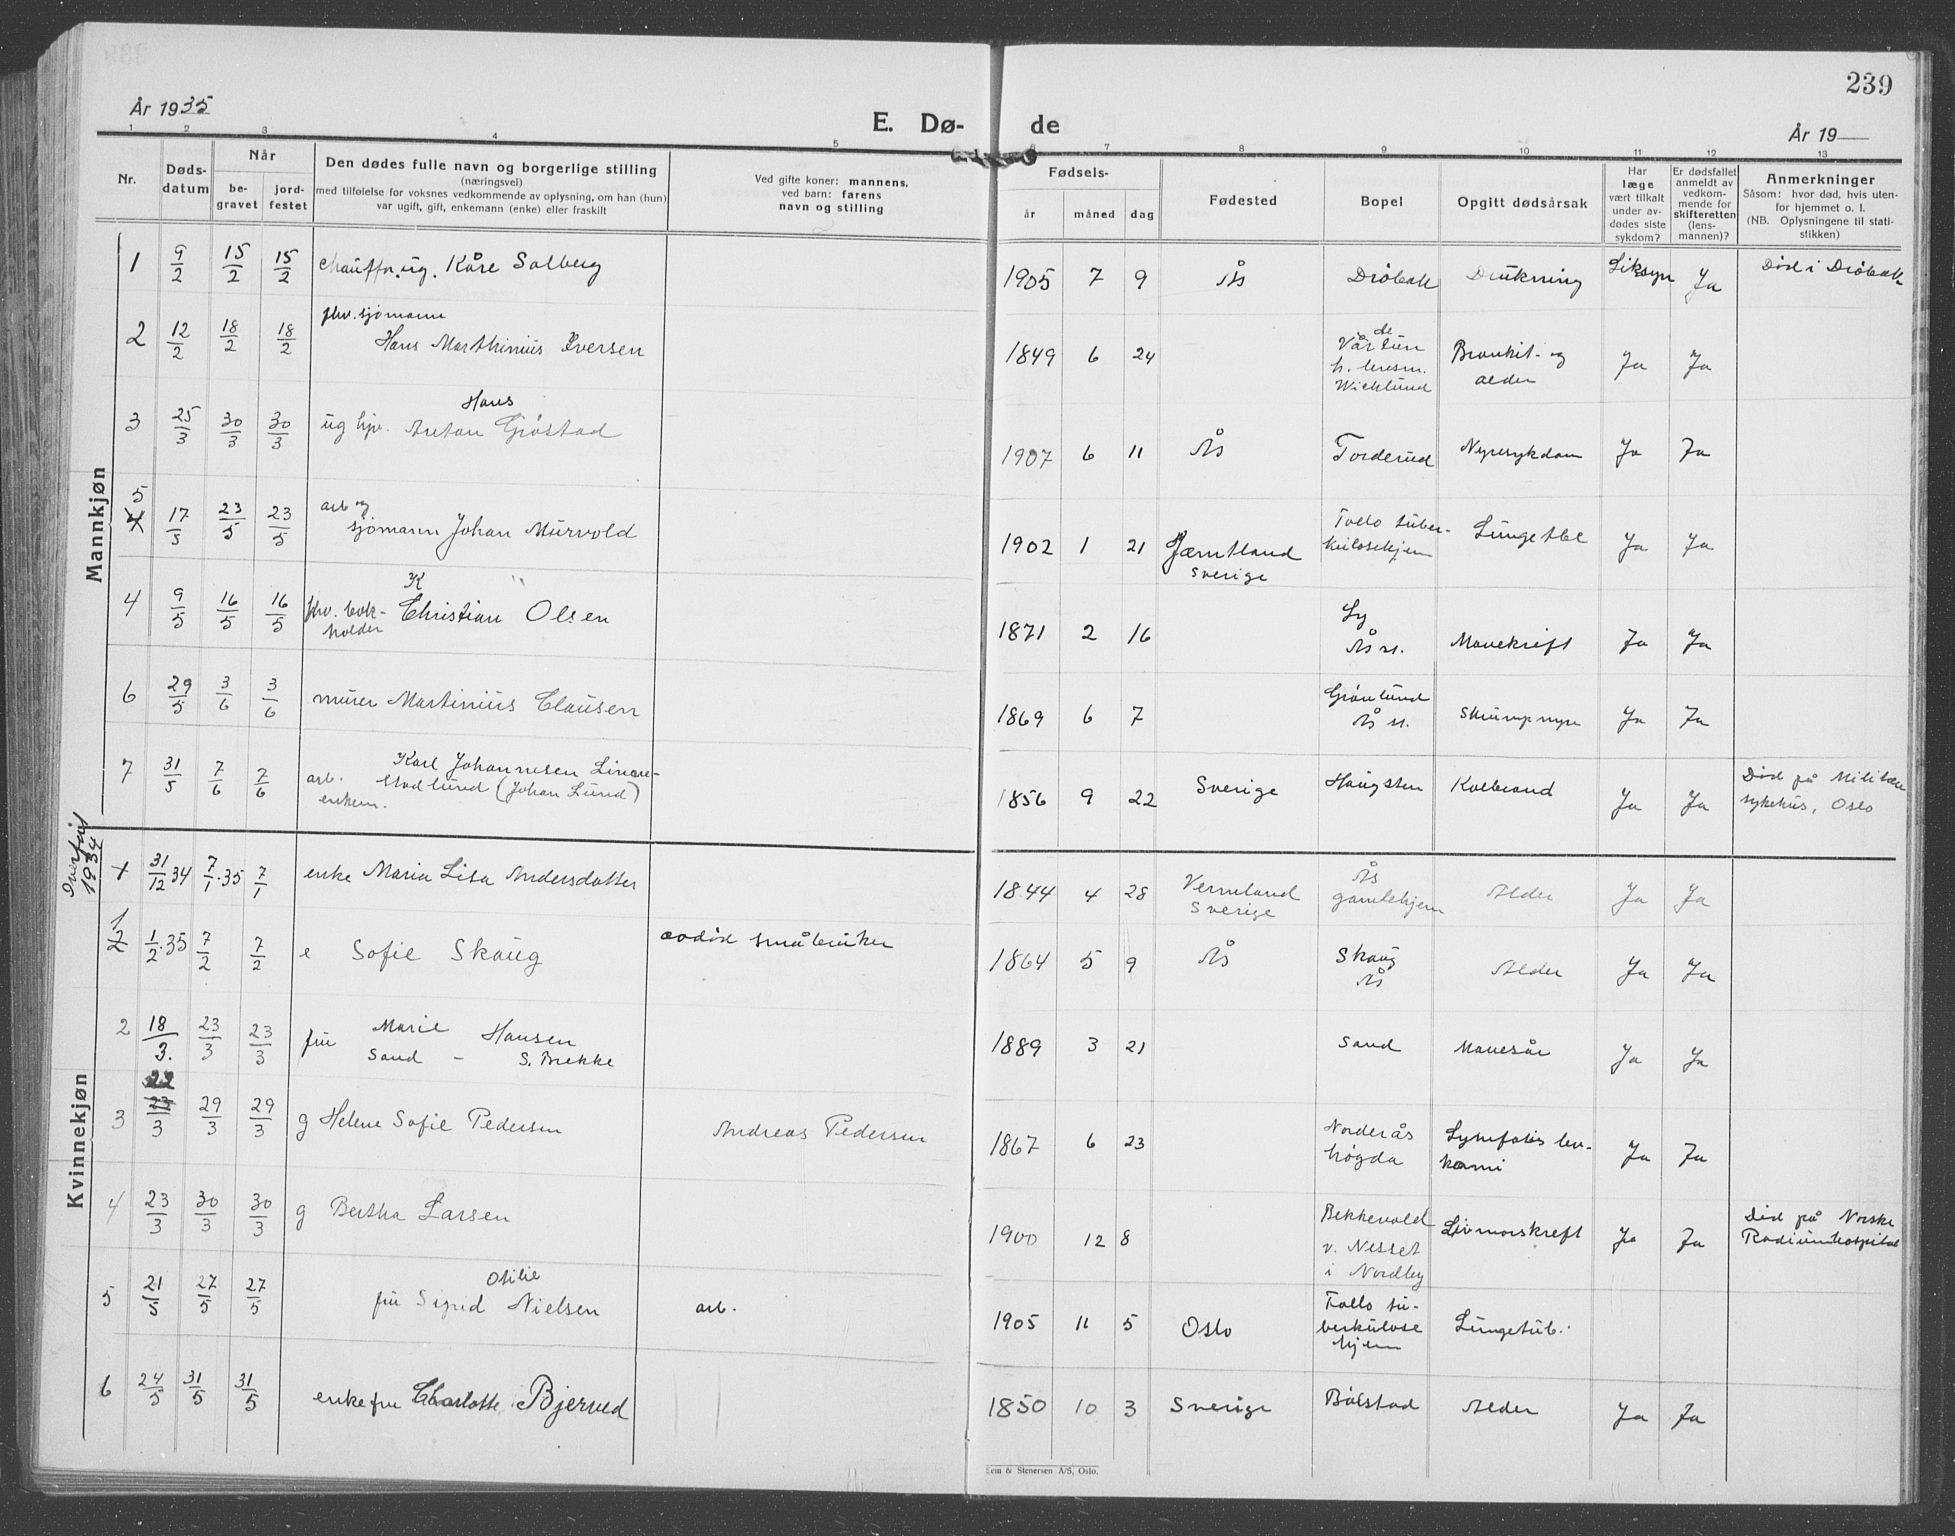 239
År 1935
E. Dø-
de
År 19
1 2 3 4 5 6 7 8 9 10 11 12 13
Nr.
Døds-
datum
Når
be-
gravet
jord-
festet
Den dødes fulle navn og borgerlige stilling
(næringsvei)
med tilføielse for voksnes vedkommende av oplysning, om han (hun)
var ugift, gift, enkemann (enke) eller fraskilt
Ved gifte koner: mannens,
ved barn: farens
navn og stilling
Fødsels-
år
måned
dag
Fødested
Bopel
Opgitt dødsårsak
Har
læge
vært tilkalt
under av-
dødes siste
sykdom?
Er dødsfallet
anmeldt av
vedkom-
mende for
skifteretten
(lens-
mannen)?
Anmerkninger
Såsom: hvor død, hvis uten-
for hjemmet o. l.
(NB. Oplysningene til stati-
stikken)
Mannkjøn
1 9/2 15/2 15/2 chauffør. ug. Kåre Solberg 1905 7 9 Ås Drøbak Drukning Liksyn Ja Død i Drøbak
2 12/2 18/2 18/2 fhv. sjømann
Hans Marthinius Iversen 1849 6 24 Bronkit- og Ja Ja
alder
Wicklund
3 25/3 30/3 30/3 ug Hans
Anton Grøstad 1907 6 11 Ås Torderud Nyresykdom Ja Ja
5
4 17/5 23/5 23/5 arb og
sjømann Johan Murvold 1902 1 21 Jæmtland
Sverige Follo tuber-
kulosehjem Lungetbc Ja Ja
4 9/5 16/5 16/5 fhv. bok-
holder K
Christian Olsen 1871 2 16 Ly
Ås st. Mavekreft Ja Ja
6 29/5 3/6 3/6 murer Martinius Clausen 1869 6 7 Grønlund
Ås st. Skrumpnyre Ja Ja
7 31/5 7/6 7/6 arb.
enkem. Karl Johannesen Linne-
stadlund (Johan Lund) 1856 9 22 Sverige Haugsten Kolbrand Ja Ja Død på Militær
sykehus, Oslo
Overført
1934
Kvinnekjøn
+ 31/12 34 7/1 35 7/1 enke Maria Lisa Andersdatter 1844 4 28 Vermland
Sverige Ås
gamlehjem Alder Ja Ja
1
2 1/2 35 7/2 7/2 e Sofie Skaug avdød småbruker 1864 5 9 Ås Skaug
Ås Alder Ja Ja
2 18/3. 23/3 23/3 fru Marie Hansen
Sand - S. Brekke 1889 3 21 Sand Mavesår Ja Ja
22
3 23/3 29/3 29/3 g Helene Sofie Pedersen Andreas Pedersen 1867 6 23 Norderås
høgda Lymfatis leu-
kæmi Ja Ja
4 23/3 30/3 30/3 g Bertha Larsen 1900 12 8 Bekkevold
v. Nesset
i Nordby Livmorskreft Ja Ja Død på Norske
Radiumhospital
5 21/5 27/5 27/5 Otilie
fru Sigrid Nielsen arb. 1905 11 5 Oslo Follo tu-
berkulose
hjem Lungetub.
6 24/5 31/5 31/5 enkefru Charlotte Bjerud 1850 10 3 Sverige Bølstad Alder Ja Ja
& Stenersen A/S, Oslo.